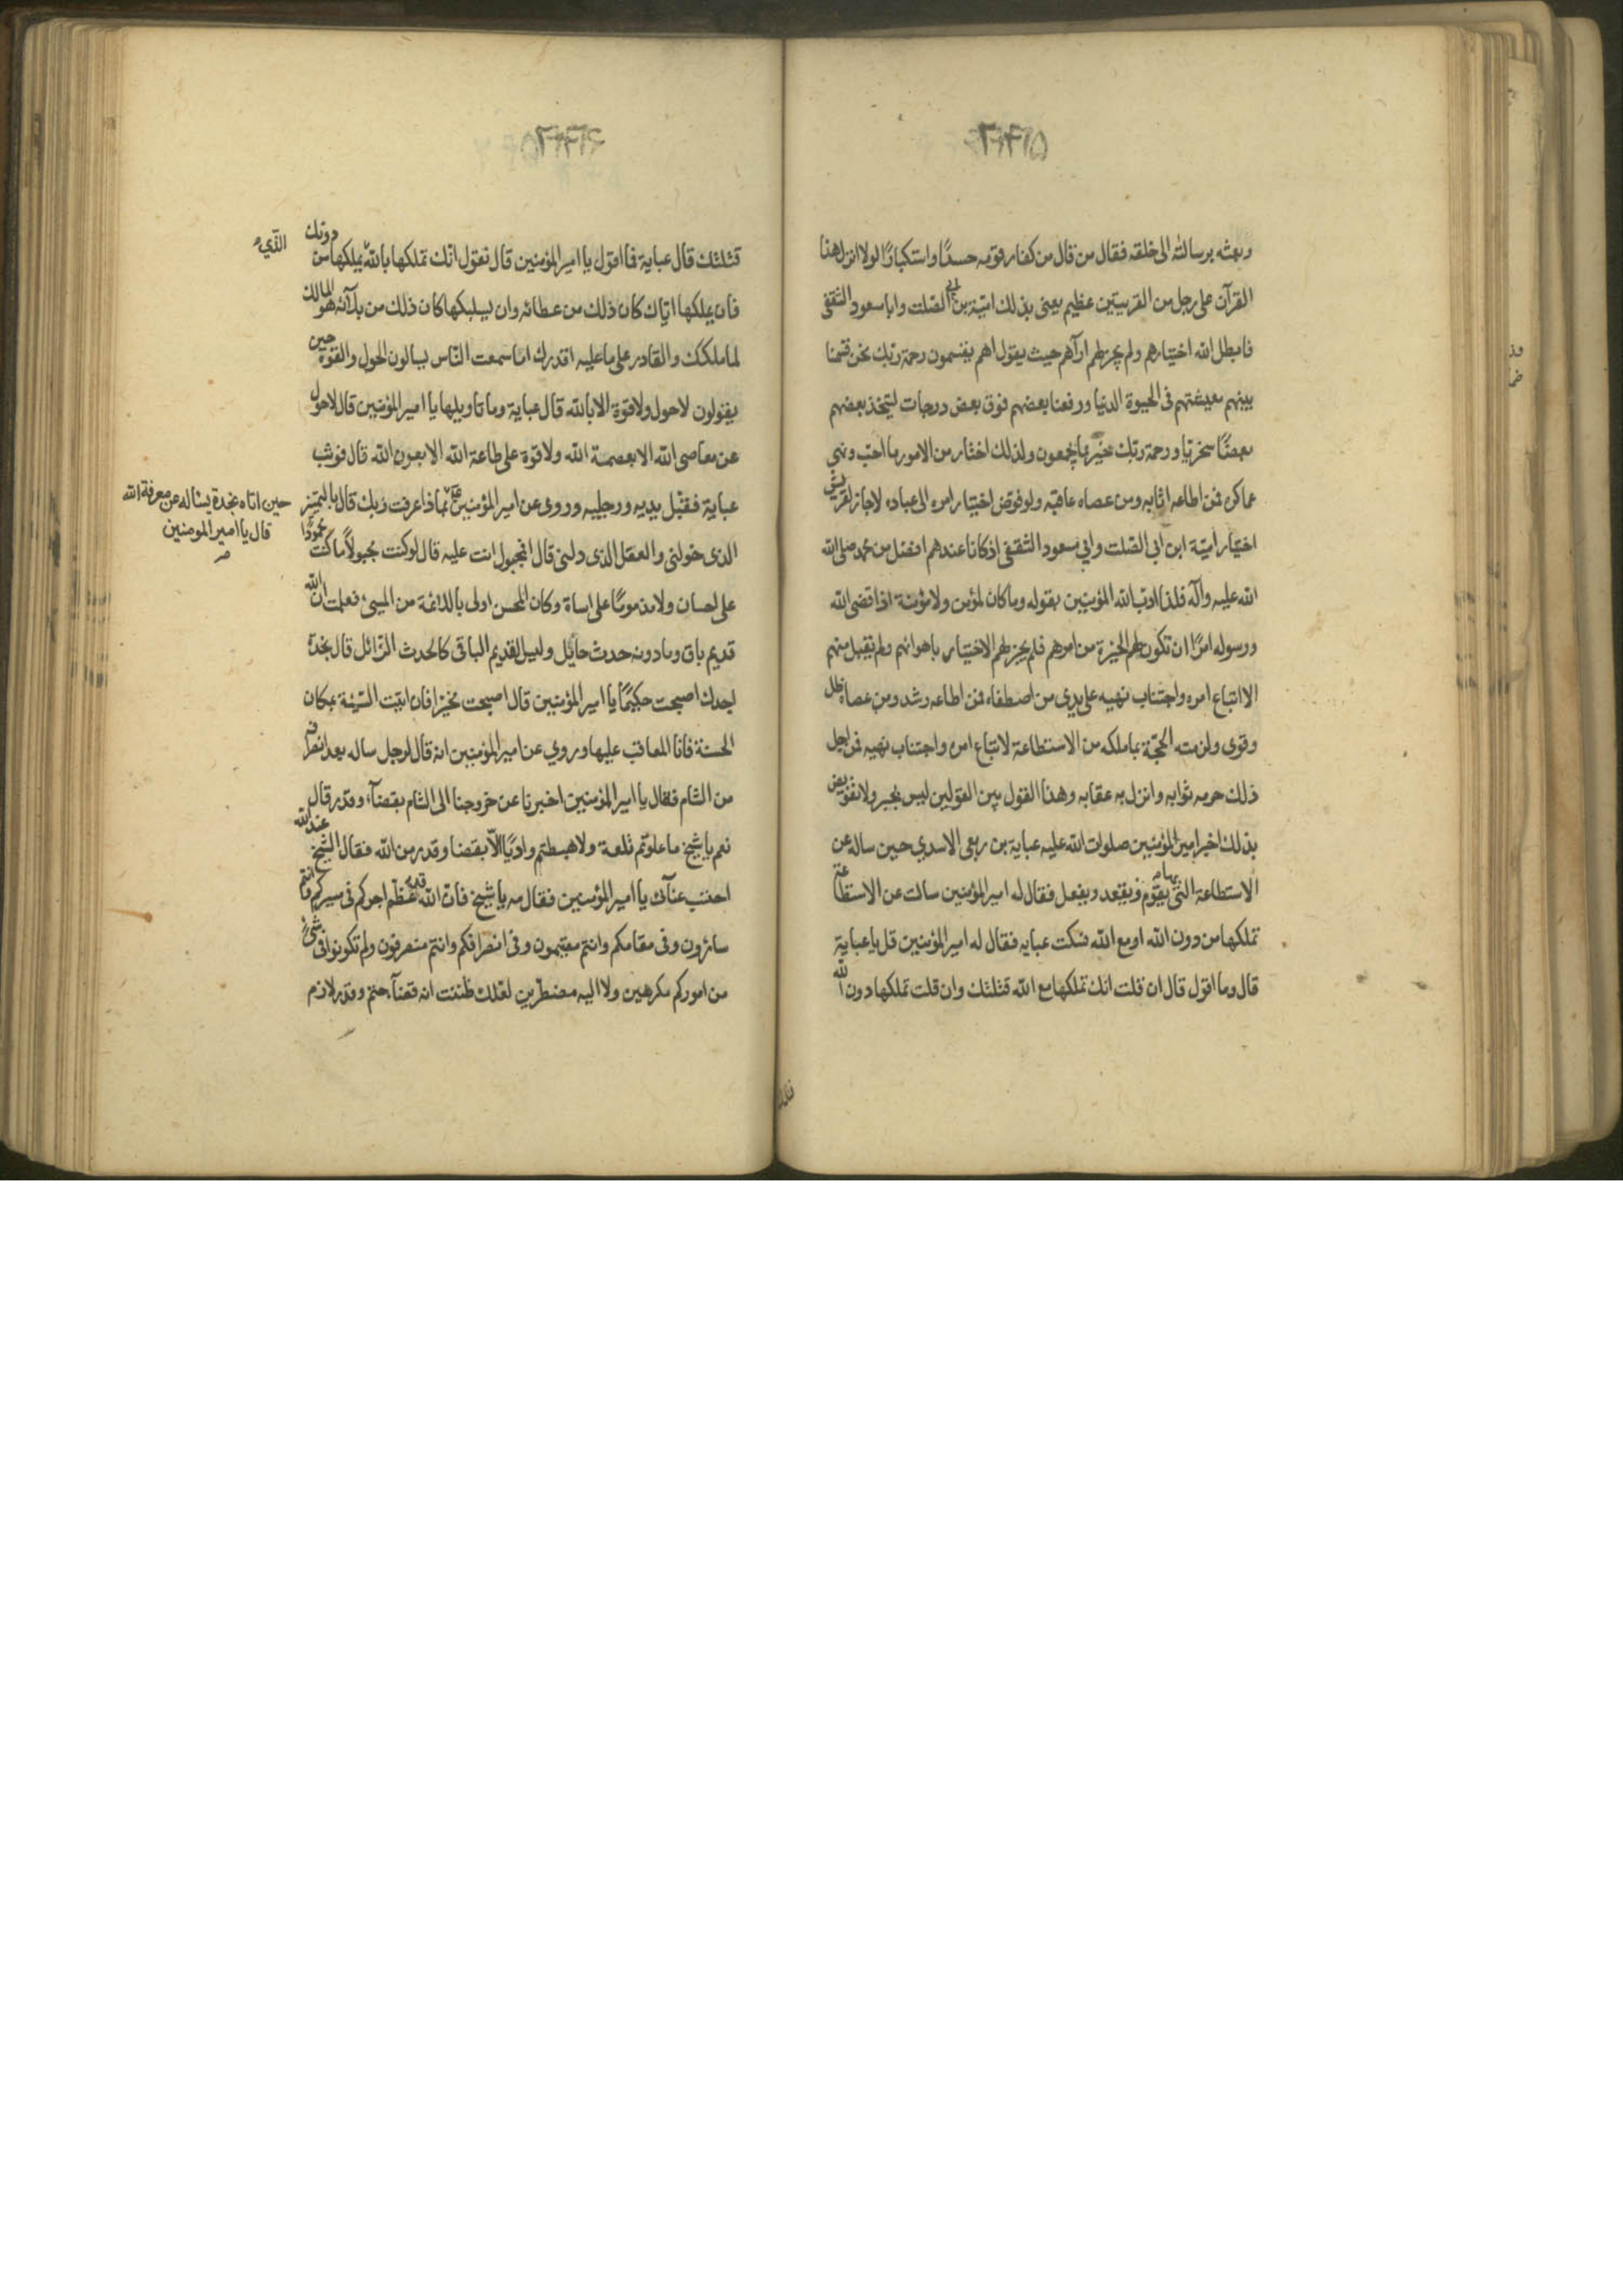 وبعثه برسالته الى خلقه فقال من قال من كفار قومه حسدًا واستكبارًا لولا انزل هذا
القرآن على رجل من القريتين عظيم يعنى بذلك اميّة بن ابى الصّلت وابا مسعود الثقفى
فابطل الله اختيارهم ولم يجز لهم ارآهم حيث يقول اهم يقسمون رحمة ربّك نحن قسمنا
بينهم معيشتهم فى الحيوة الدنيا ورفعنا بعضهم فوق بعض درجات ليتّخذ بعضهم
بعضًا سخريّا ورحمة ربّك خير مما يجمعون ولذلك اختار من الامور ما احبّ ونهى
عما كره فمن اطاعه اثابه ومن عصاه عاقبه ولو فوّض اختيار امره الى عباده لاجاز لقريش
اختيار اميّة ابن ابى الصّلت وابى مسعود الثّقفى اذ كانا عندهم افضل من محمد صلى الله
الله عليه وآله فلذا ادّب الله المؤمنين بقوله وما كان لمؤمن ولا مؤمنة اذا قضى الله
ورسوله امرًا ان تكون لهم الخيرة من امرهم فلم يجز لهم الاختيار باهوائهم ولم يقبل منهم
الا اتباع امره واجتناب نهيه على يدى من اصطفاه فمن اطاعه رشد ومن عصاه ضل
وغوى ولزمته الحجّة بما ملكه من الاستطاعة لاتباع امره واجتناب نهيه فمن اجل
ذلك حرمه ثوابه وانزل به عقابه وهذا القول بين القولين ليس بجبر ولا تفويض
بذلك اخبر امير المؤمنين صلوات الله عليه عباية بن ربعى الاسدي حين ساله عن
الاستطاعة التى بها يقوم ويقعد ويفعل فقال له امير المؤمنين سالت عن الاستطاعة
تملكها من دون الله او مع الله فسكت عبايه فقال له امير المؤمنين قل يا عباية
قال وما اقول قال ان قلت انك تملكها مع الله قتلتك وان قلت تملكها دون الله
قتلتك قال عباية فما اقول يا امير المؤمنين قال تقول انّك تملكها بالله الّذي يملكها من دونك
فان يملكها ايّاك كان ذلك من عطائه وان يسلبكها كان ذلك من بلآئه هو المالك
لما ملكك والقادر على ما عليه اقدرك اما سمعت النّاس يسالون الحول والقوّة حين
يقولون لا حول ولا قوة الا بالله قال عباية وما تاويلها يا امير المؤمنين قال لا حول
عن معاصى الله الا بعصمة الله ولا قوة على طاعة الله الا بعون الله قال فوثب
عباية فقبّل يديه ورجليه وروى عن امير المؤمنين حين اتاه نجدة يسئاله عن معرفة الله قال يا امير المومنين بماذا عرفت ربك قال بالتميز
الذى خولنى والعقل الذى دلنى قال افمجبول انت عليه قال لو كنت مجبولاً ما كنت محمودًا
على احسان ولا مذمومًا على اساة وكان المحسن اولى باللائمة من المسىء فعلمت ان الله
قديم باق وما دونه حدث حايل وليس القديم الباقى كالحدث الزّائل قال نجدة
اجدك اصبحت حكيمًا يا امير المؤمنين قال اصبحت مخيرًا فان اتيت السّيئة بمكان
الحسنة فانا المعاقب عليها وروي عن امير المؤمنين انه قال لرجل ساله بعد انصرافه
من الشام فقال يا امير المؤمنين اخبرنا عن خروجنا الى الشام بقضآء وقدر قال
نعم يا شيخ ما علوتم تلعة ولا هبطتم واديًا الّا بقضا وقدر من الله فقال الشيخ عند الله
احتسب عنآئى يا امير المؤمنين فقال مه يا شيخ فانّ الله قد عظّم اجركم فى مسيركم وانتم
سائرون وفى مقامكم وانتم مقيمون وفى انصرافكم وانتم منصرفون ولم تكونوا فى شىء
من اموركم مكرهين ولا اليه مضطرّين لعلّك ظننت انه قضآء حتم وقدر لازم